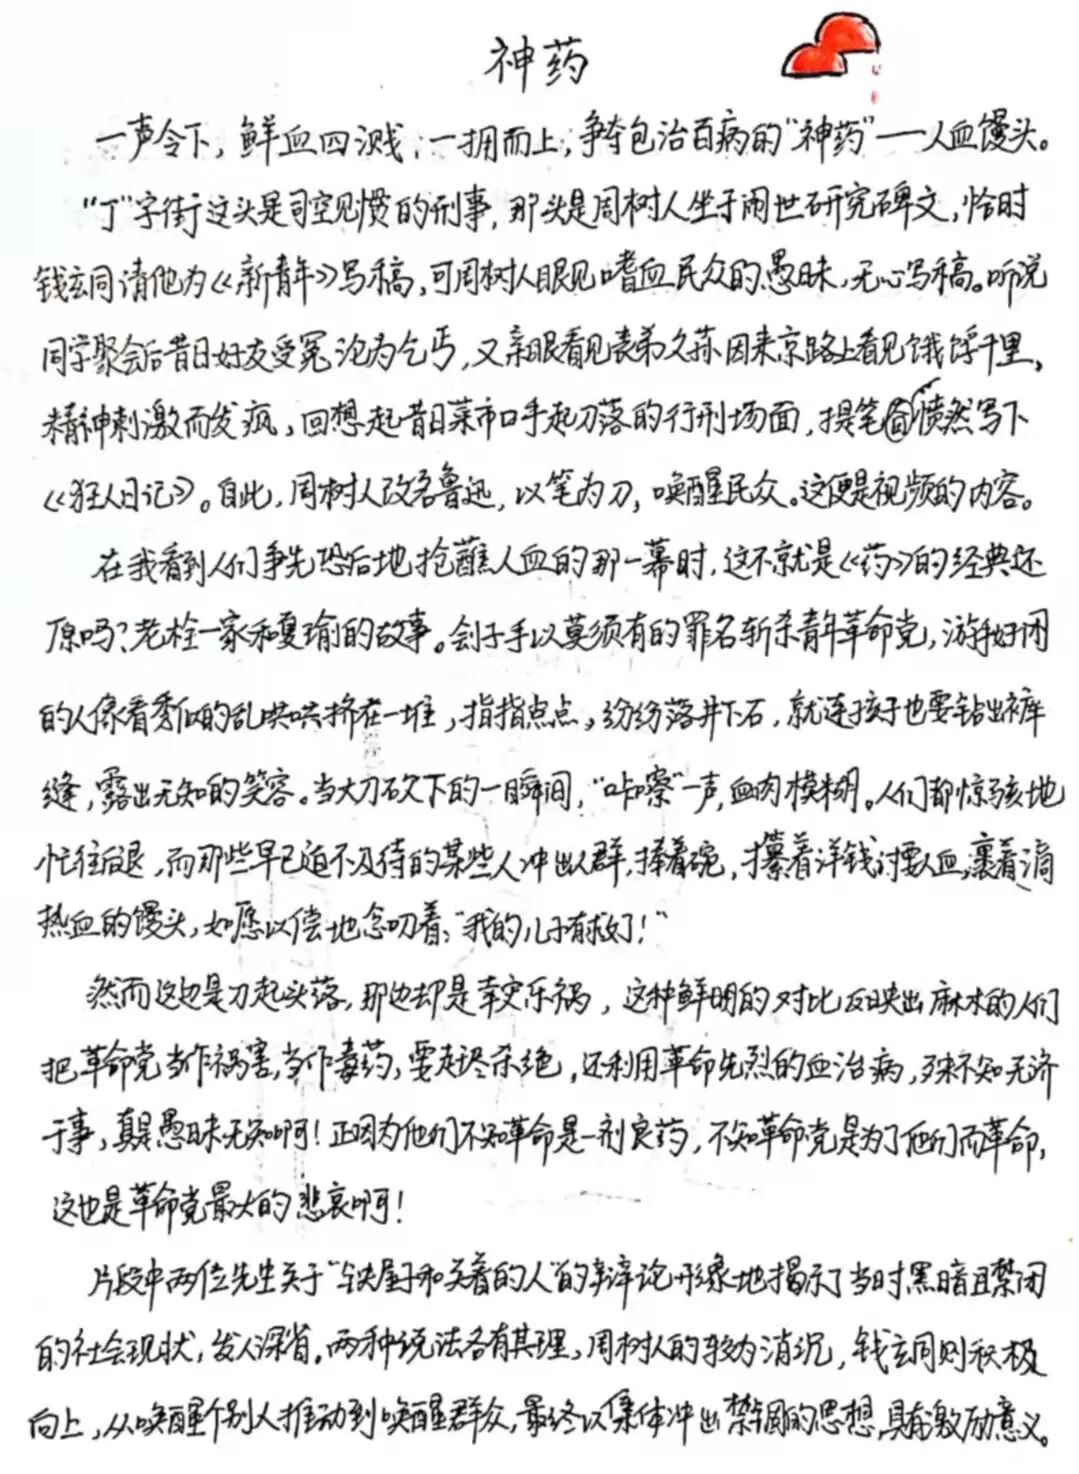 神药
一声令下，鲜血四溅，一拥而上，争夺包治百病的“神药”——人血馒头。
“丁”字街这头是司空见惯的刑事，那头是周树人坐于闹世研究碑文，恰时
钱玄同请他为《新青年》写稿，可周树人眼见嗜血民众的愚昧，无心写稿。听说
同学聚会后昔日好友受冤沦为乞丐，又亲眼看见表弟久荪因来京路上看见饿殍千里，
精神刺激而发疯，回想起昔日菜市口手起刀落的行刑场面，提笔愤然写下
《狂人日记》。自此，周树人改名鲁迅，以笔为刀，唤醒民众。这便是视频的内容。
在我看到人们争先恐后地抢蘸人血的那一幕时，这不就是《药》的经典还
原吗？老栓一家和夏瑜的故事。刽子手以莫须有的罪名斩杀青年革命党，游手好闲
的人像看秀似的乱哄哄挤在一堆，指指点点，纷纷落井下石，就连孩子也要钻出裤
缝，露出无知的笑容。当大刀砍下的一瞬间，“咔嚓”一声，血肉模糊。人们都惊骇地
忙往后退，而那些早已迫不及待的某些人冲出人群，捧着碗，攥着洋钱讨要人血，裹着滴
热血的馒头，如愿以偿地念叨着：“我的儿子有救了！”
然而这边是刀起头落，那边却是幸灾乐祸，这种鲜明的对比反映出麻木的人们
把革命党当作祸害，当作毒药，要赶尽杀绝，还利用革命先烈的血治病，殊不知无济
于事，真是愚昧无知啊！正因为他们不知革命是一剂良药，不知革命党是为了他们而革命，
这也是革命党最大的悲哀啊！
片段中两位先生关于“铁屋子和关着的人”的辩论形象地揭示了当时黑暗且禁闭
的社会现状，发人深省。两种说法各有其理，周树人的较为消沉，钱玄同则积极
向上，从唤醒个别人推动到唤醒群众，最终以集体冲出禁锢的思想，具有激励意义。